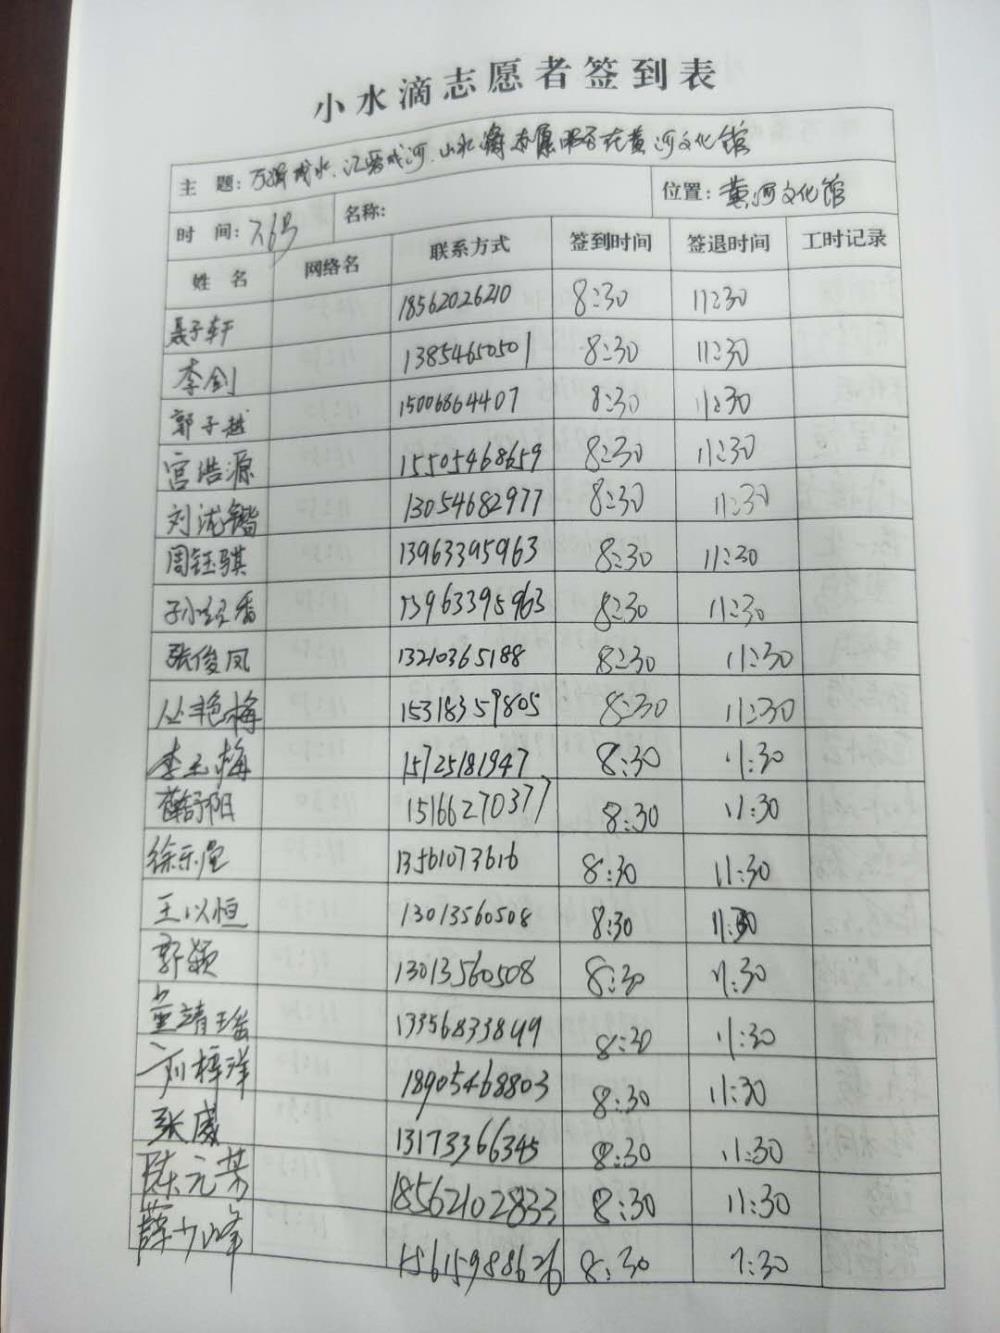 小水滴志愿者签到表
主 题: 万滴成水、汇居成河、山水 志愿服务在黄河文化馆
时 间: 7.6号 名称: 位置: 黄河文化馆
姓 名 网络名 联系方式 签到时间 签退时间 工时记录
聂子轩 18562026210 8:30 11:30
李剑 13854650501 8:30 11:30
郭子越 15006864407 8:30 11:30
宫浩源 15505468659 8:30 11:30
刘 锴 13054682977 8:30 11:30
周钰骐 13963395963 8:30 11:30
孙 香 13963395963 8:30 11:30
张俊凤 13210365188 8:30 11:30
丛艳梅 15318359805 8:30 11:30
李玉梅 15725181947 8:30 11:30
薛舒阳 15166270377 8:30 11:30
徐乐 13561073616 8:30 11:30
王以恒 13013560508 8:30 11:30
郭颖 13013560508 8:30 11:30
董靖瑶 13356833849 8:30 11:30
刘梓洋 18905468803 8:30 11:30
张威 13173366345 8:30 11:30
陈元芳 18562102833 8:30 11:30
薛少峰 15615988626 8:30 11:30